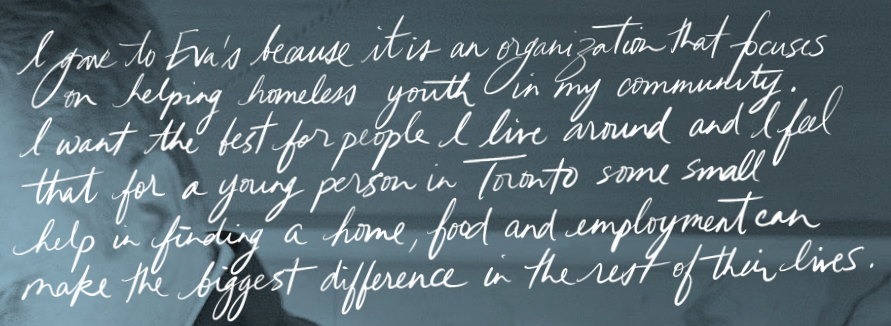 I gave to Eva's because it is an organization that focuses
on helping homeless youth in my community.
I want the best for people I live around and I feel
that for a young person in Toronto some small
help in finding a home, food and employment can
make the biggest difference in the rest of their lives.